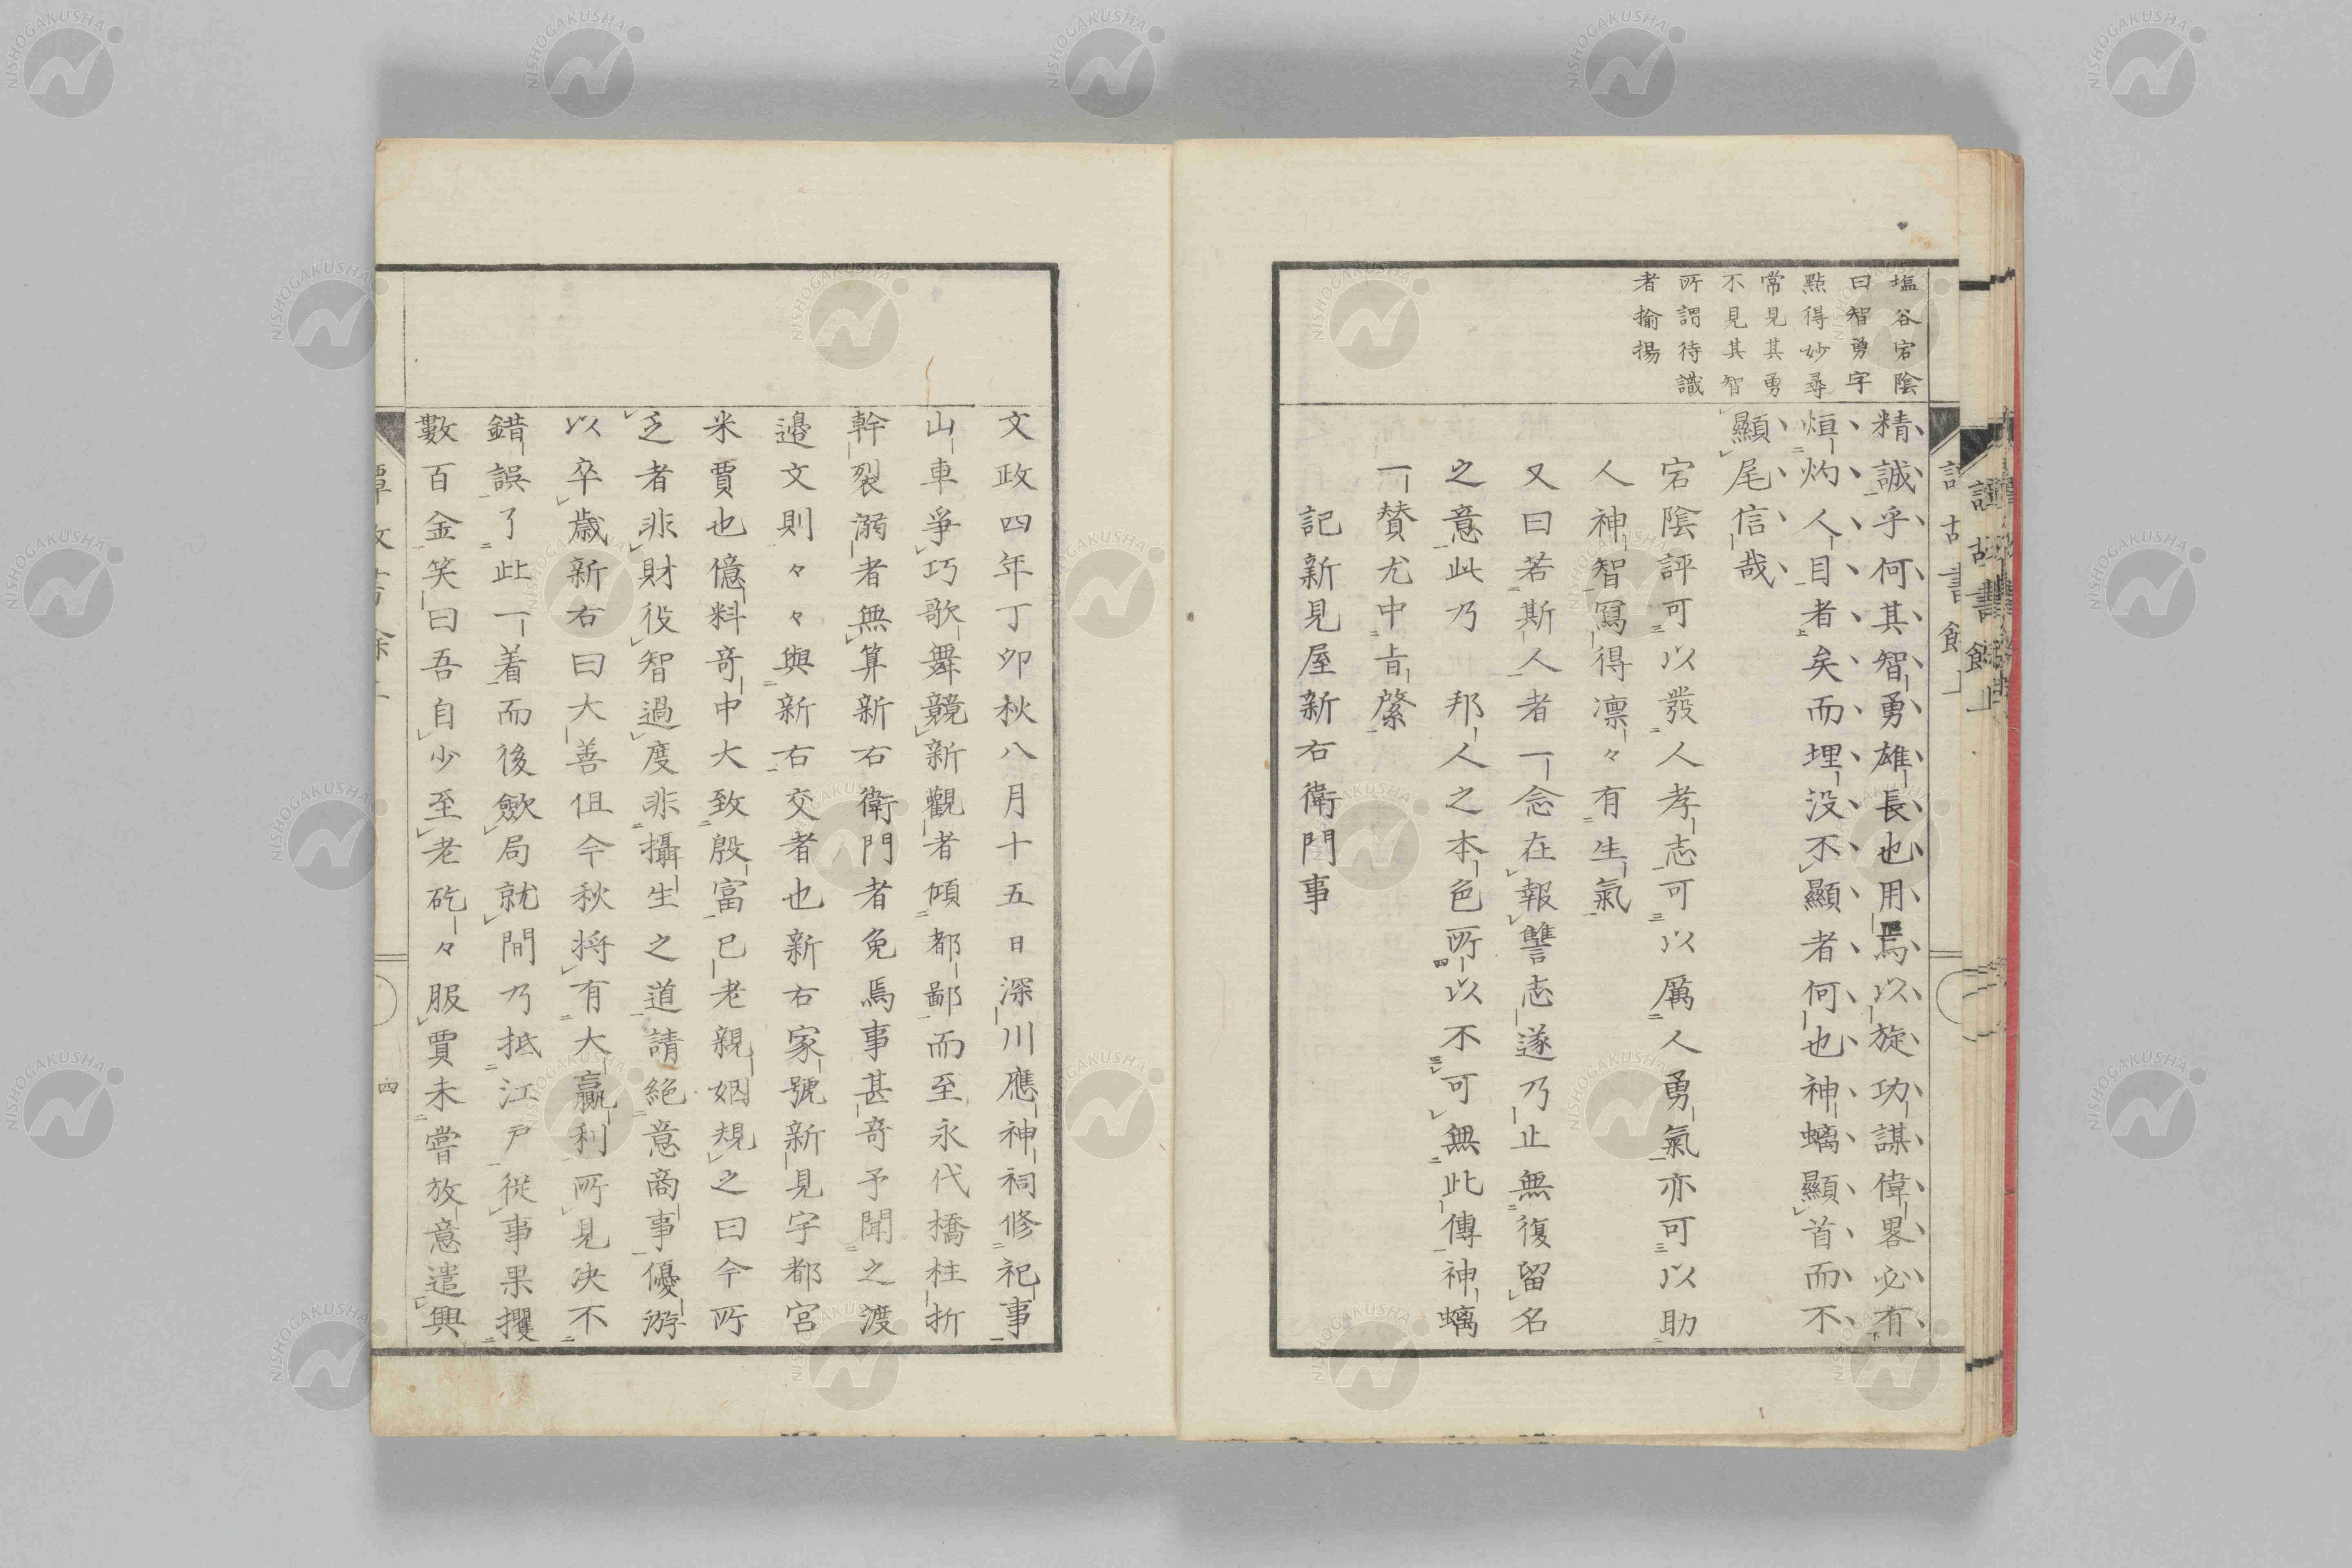 塩谷宕陰
曰智勇字
點得妙尋
常見其勇
不見其智
所謂待識
者揄揚
精誠乎何其智勇雄長也用焉以旋功謀偉畧必有
烜灼人目者矣而埋没不顯者何也神螭顯首而不
顯尾信哉
宕陰評可以發人孝志可以厲人勇氣亦可以助
人神智寫得凛々有生氣
又曰若斯人者一念在報讐志遂乃止無復留名
之意此乃 邦人之本色所以不可無此傳神螭
一賛尤中肯綮
記新見屋新右衛門事
文政四年丁卯秋八月十五日深川應神祠修祀事
山車爭巧歌舞競新觀者傾都鄙而至永代橋柱折
幹裂溺者無算新右衛門者免焉事甚奇予聞之渡
邉文則々々與新右交者也新右家號新見字都宮
米賈也億料奇中大致殷富已老親姻規之曰今所
乏者非財役智過度非攝生之道請絶意商事優游
以卒歳新右曰大善但今秋将有大贏利所見决不
錯誤了此一着而後歛局就間乃抵江戸從事果攫
數百金笑曰吾自少至老矻々服賈未嘗放意遣興
四
NISHOGAKUSHA